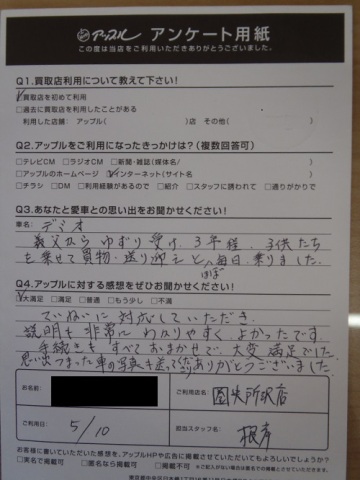 アップル アンケート用紙
この度は当店をご利用いただきありがとうございました。
Q1.買取店利用について教えて下さい!
□買取店を初めて利用
□過去に買取店を利用したことがある
利用した店舗: アップル( )店 その他( )
Q2.アップルをご利用になったきっかけは?(複数回答可)
□テレビCM □ラジオCM □新聞・雑誌(媒体名 )
□アップルのホームページ □インターネット(サイト名 )
□チラシ □DM □利用経験があるので □紹介 □スタッフに誘われて □通りがかりで
Q3.あなたと愛車との思い出をお聞かせください!
車名: デミオ
義父からゆずり受け、3年程、子供たち
を乗せて買物・送り迎えとほぼ毎日、乗りました。
Q4.アップルに対する感想をぜひお聞かせください!
□大満足 □満足 □普通 □もう少し □不満
ていねいに対応していただき、
説明も非常にわかりやすく、よかったです。
手続きもすべておまかせで、大変満足でした。
思い出つまった車の写真も送ってくださりありがとうございました。
お名前:
ご利用店名:
所沢店
ご利用日:
5/10
担当スタッフ名:
お客様に書いていただいた感想を、アップルHPや広告に掲載させていただいてもよろしいでしょうか?
□実名で掲載可 □匿名なら掲載可 □掲載不可